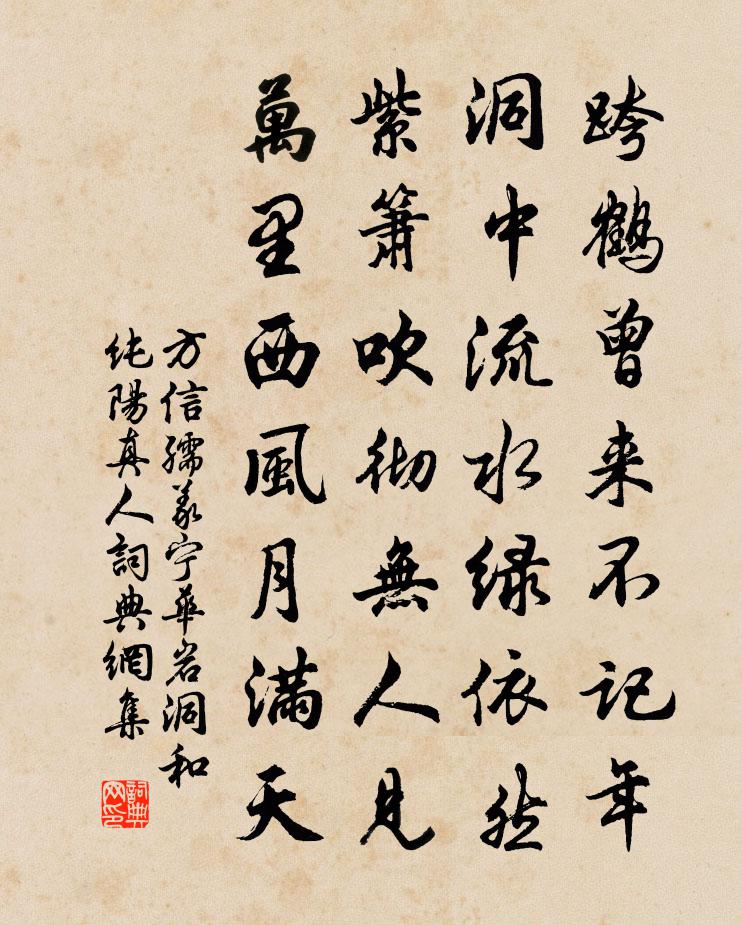 跨鶴曾来不记年
洞中流水緑依然
紫簫吹彻無人見
萬里西風月滿天
方信孺義宁華岩洞和
纯陽真人詞典網集
詞典
网印